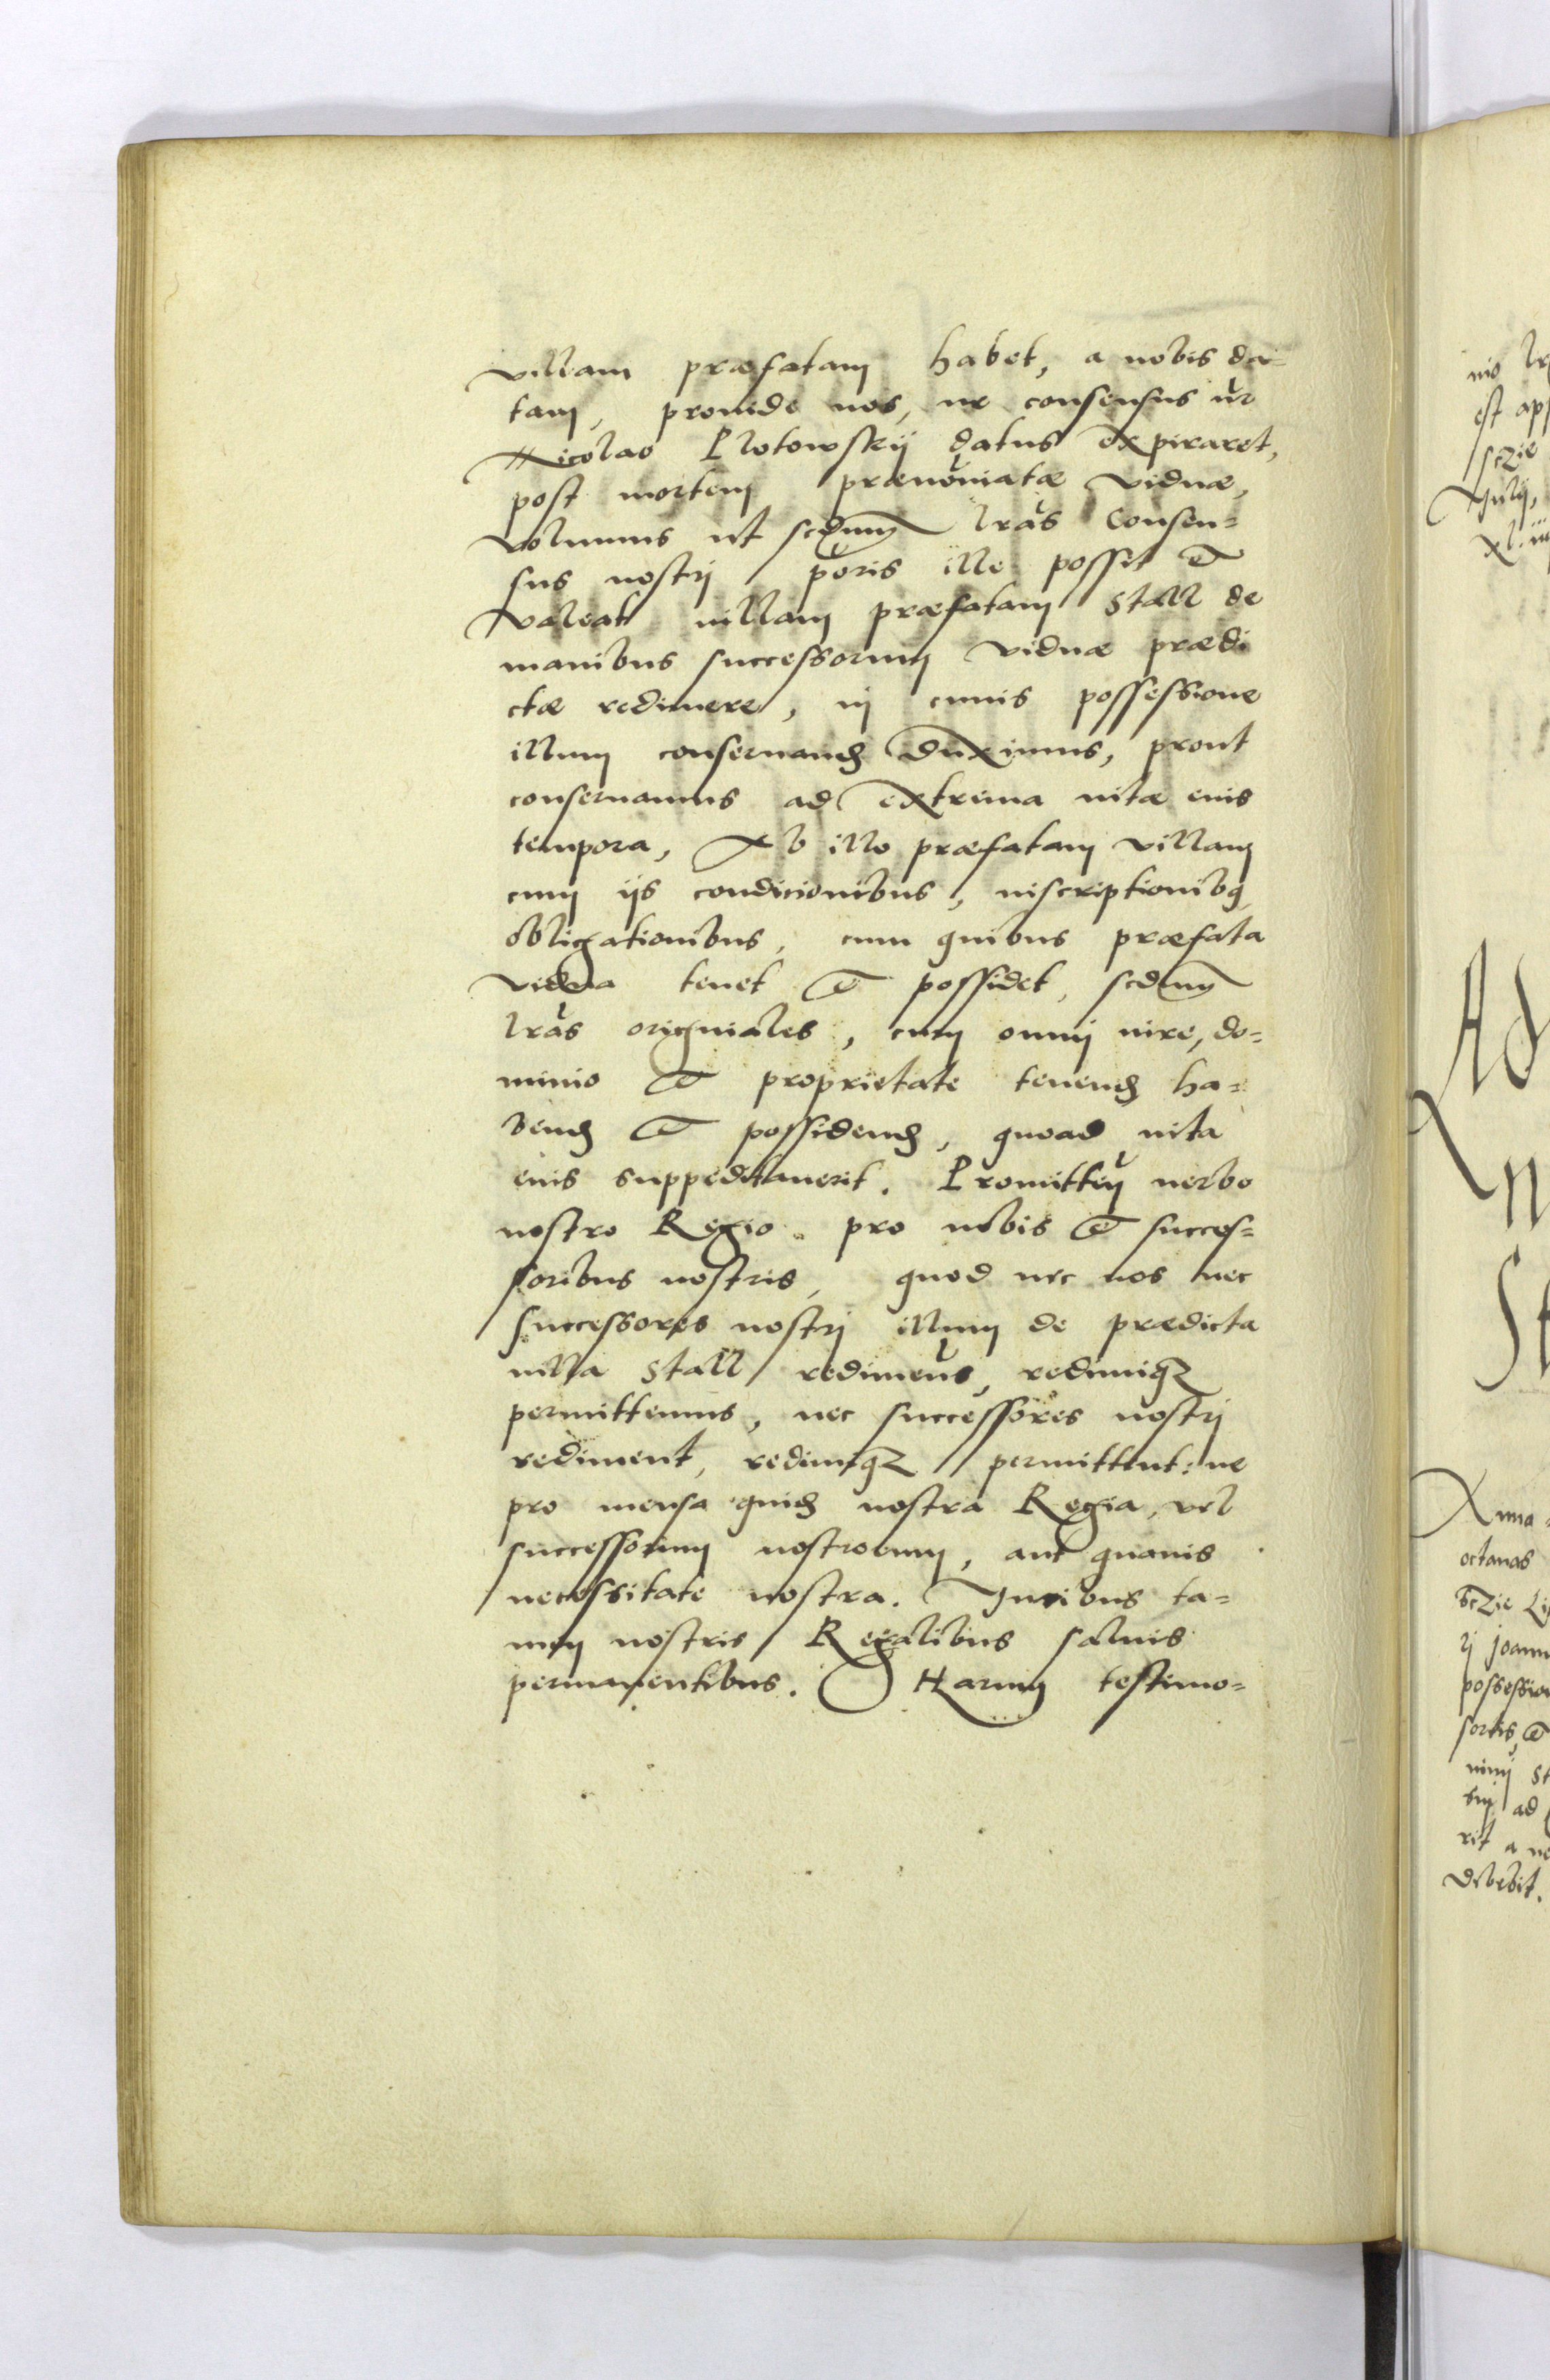 villam præfatam habet, a nobis da-
tam, proinde nos, ne consensus nr̄
Nicolao Plotowskij datus expiraret,
post mortem prænoīatæ viduæ,
volumus ut scdum lr̄as Consen=
sus nostrj pōris ille possit et
valeat villam præfatam Stall de
manibus successorum viduæ prædi
ctæ redimere, in cuius possessione
illum conseruand duximus, prout
conseruamus ad extrema vitæ eius
tempora, Ab illo præfatam villam
cum ijs conditionibus, inscriptionibq
obligationibus, cum quibus præfata
vidua tenet et possidet, scdum
lr̄as originales, cum omnj iure, do=
minio et proprietate tenend ha=
bend et possidend, quoad vita
eius suppeditauerit. Promittim̄ verbo
nostro Regio pro nobis et succes=
soribus nostris, quod nec nos nec
successores nostrj illum de prædicta
villa Stall redimem̄s, redimiqz
permittemus, nec successores nostrj
rediment, redimiqz permittent: ne
pro mensa quid nostra Regia, vel
successorum nostrorum, aut quauis
necessitate nostra. Iuribus ta=
men nostris Regalibus saluis
permanentibus. Harum testimo=
nio
est
sczie
Iulij,
Ad
Anna
octauas
sczie
rj Joann
possession
sortis, et
ad
rit a no
debebit.